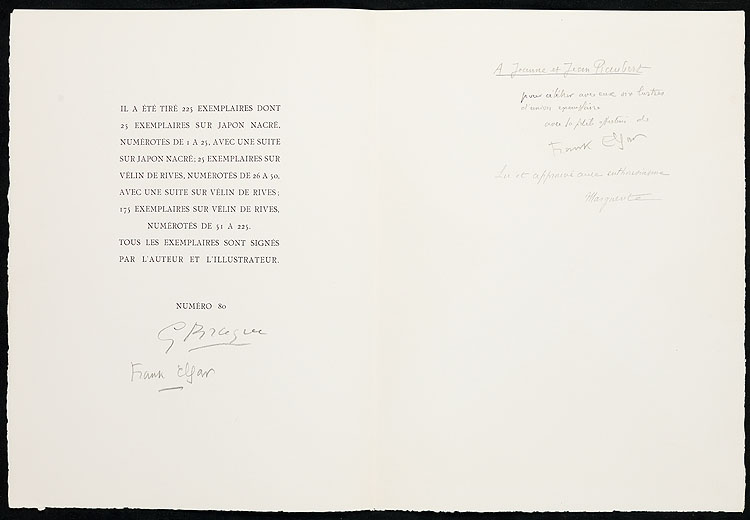 IL A ÉTÉ TIRÉ 225 EXEMPLAIRES DONT
25 EXEMPLAIRES SUR JAPON NACRÉ,
NUMÉROTÉS DE 1 A 25, AVEC UNE SUITE
SUR JAPON NACRÉ; 25 EXEMPLAIRES SUR
VÉLIN DE RIVES, NUMÉROTÉS DE 26 A 50,
AVEC UNE SUITE SUR VÉLIN DE RIVES;
175 EXEMPLAIRES SUR VÉLIN DE RIVES,
NUMÉROTÉS DE 51 A 225.
TOUS LES EXEMPLAIRES SONT SIGNÉS
PAR L'AUTEUR ET L'ILLUSTRATEUR.
NUMÉRO 80
G Braque
Frank Elgar
A Jeanne et Jean
pour avec eux six lustres
exemplaire
avec de
Frank Elgar
Lu et approuvé avec enthousiasme
Marguerite